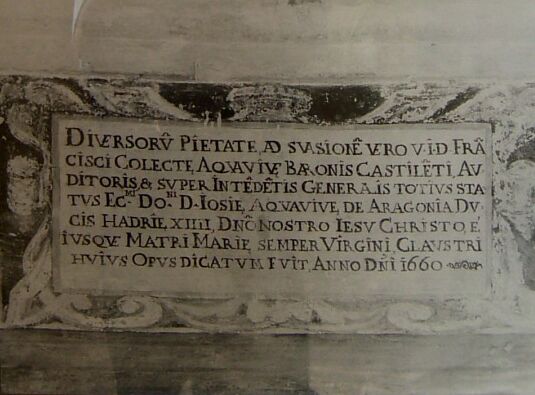 DIVERSORŨ PIETATE, AD SVASIONẼ VERO V.I.D FRÃ
CISCI COLECTE, AQVAVIVE BARONIS CASTILẼTI, AV
DITORIS, & SVPER INTẼDẼTIS GENERALIS TOTIVS STA
TVS ECMI DONI D. IOSIE, AQVAVIVE, DE ARAGONIA DV
CIS HADRIE, XIIII, DNO NOSTRO IESV CHRISTO, E
IVSQVE MATRI MARIE, SEMPER VIRGINI, CLAVSTRI
HVIVS OPVS DICATVM FVIT, ANNO DÑI 1660